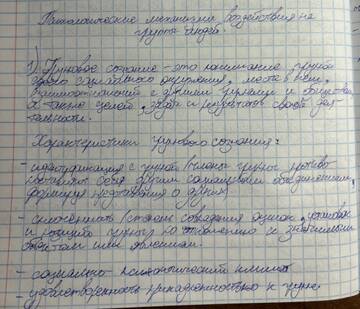 Психологические механизмы воздействия на
группы людей.
1) Групповое сознание – это понимание группой
своего социального окружения, места в нем,
взаимоотношений с другими группами и обществом,
а также целей, задач и результатов своей дея-
тельности.
Характеристики группового сознания:
- идентификация с группой (члены группы противо-
поставляют себя другим социальным объединениям,
формируя представления о других)
- сплоченность (степень совпадения оценок, установок
и позиций группы по отношению к значимым
объектам или явлениям.
- социально-психологический климат
- удовлетворенность принадлежностью к группе.